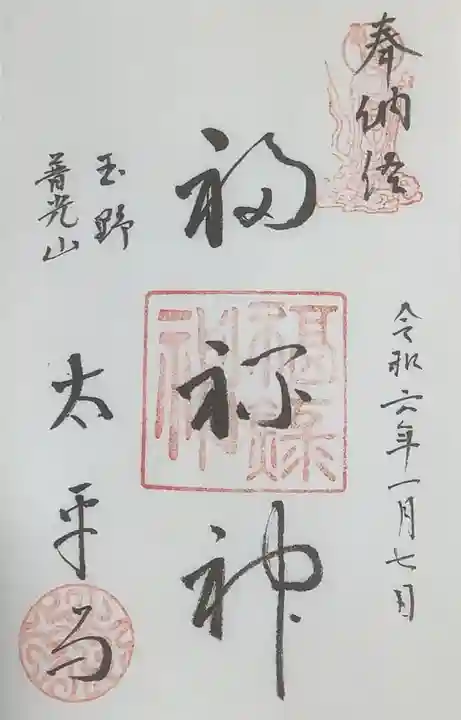 奉納経
令和六年一月七日
福禄神
福禄神
玉野
普光山
太平寺